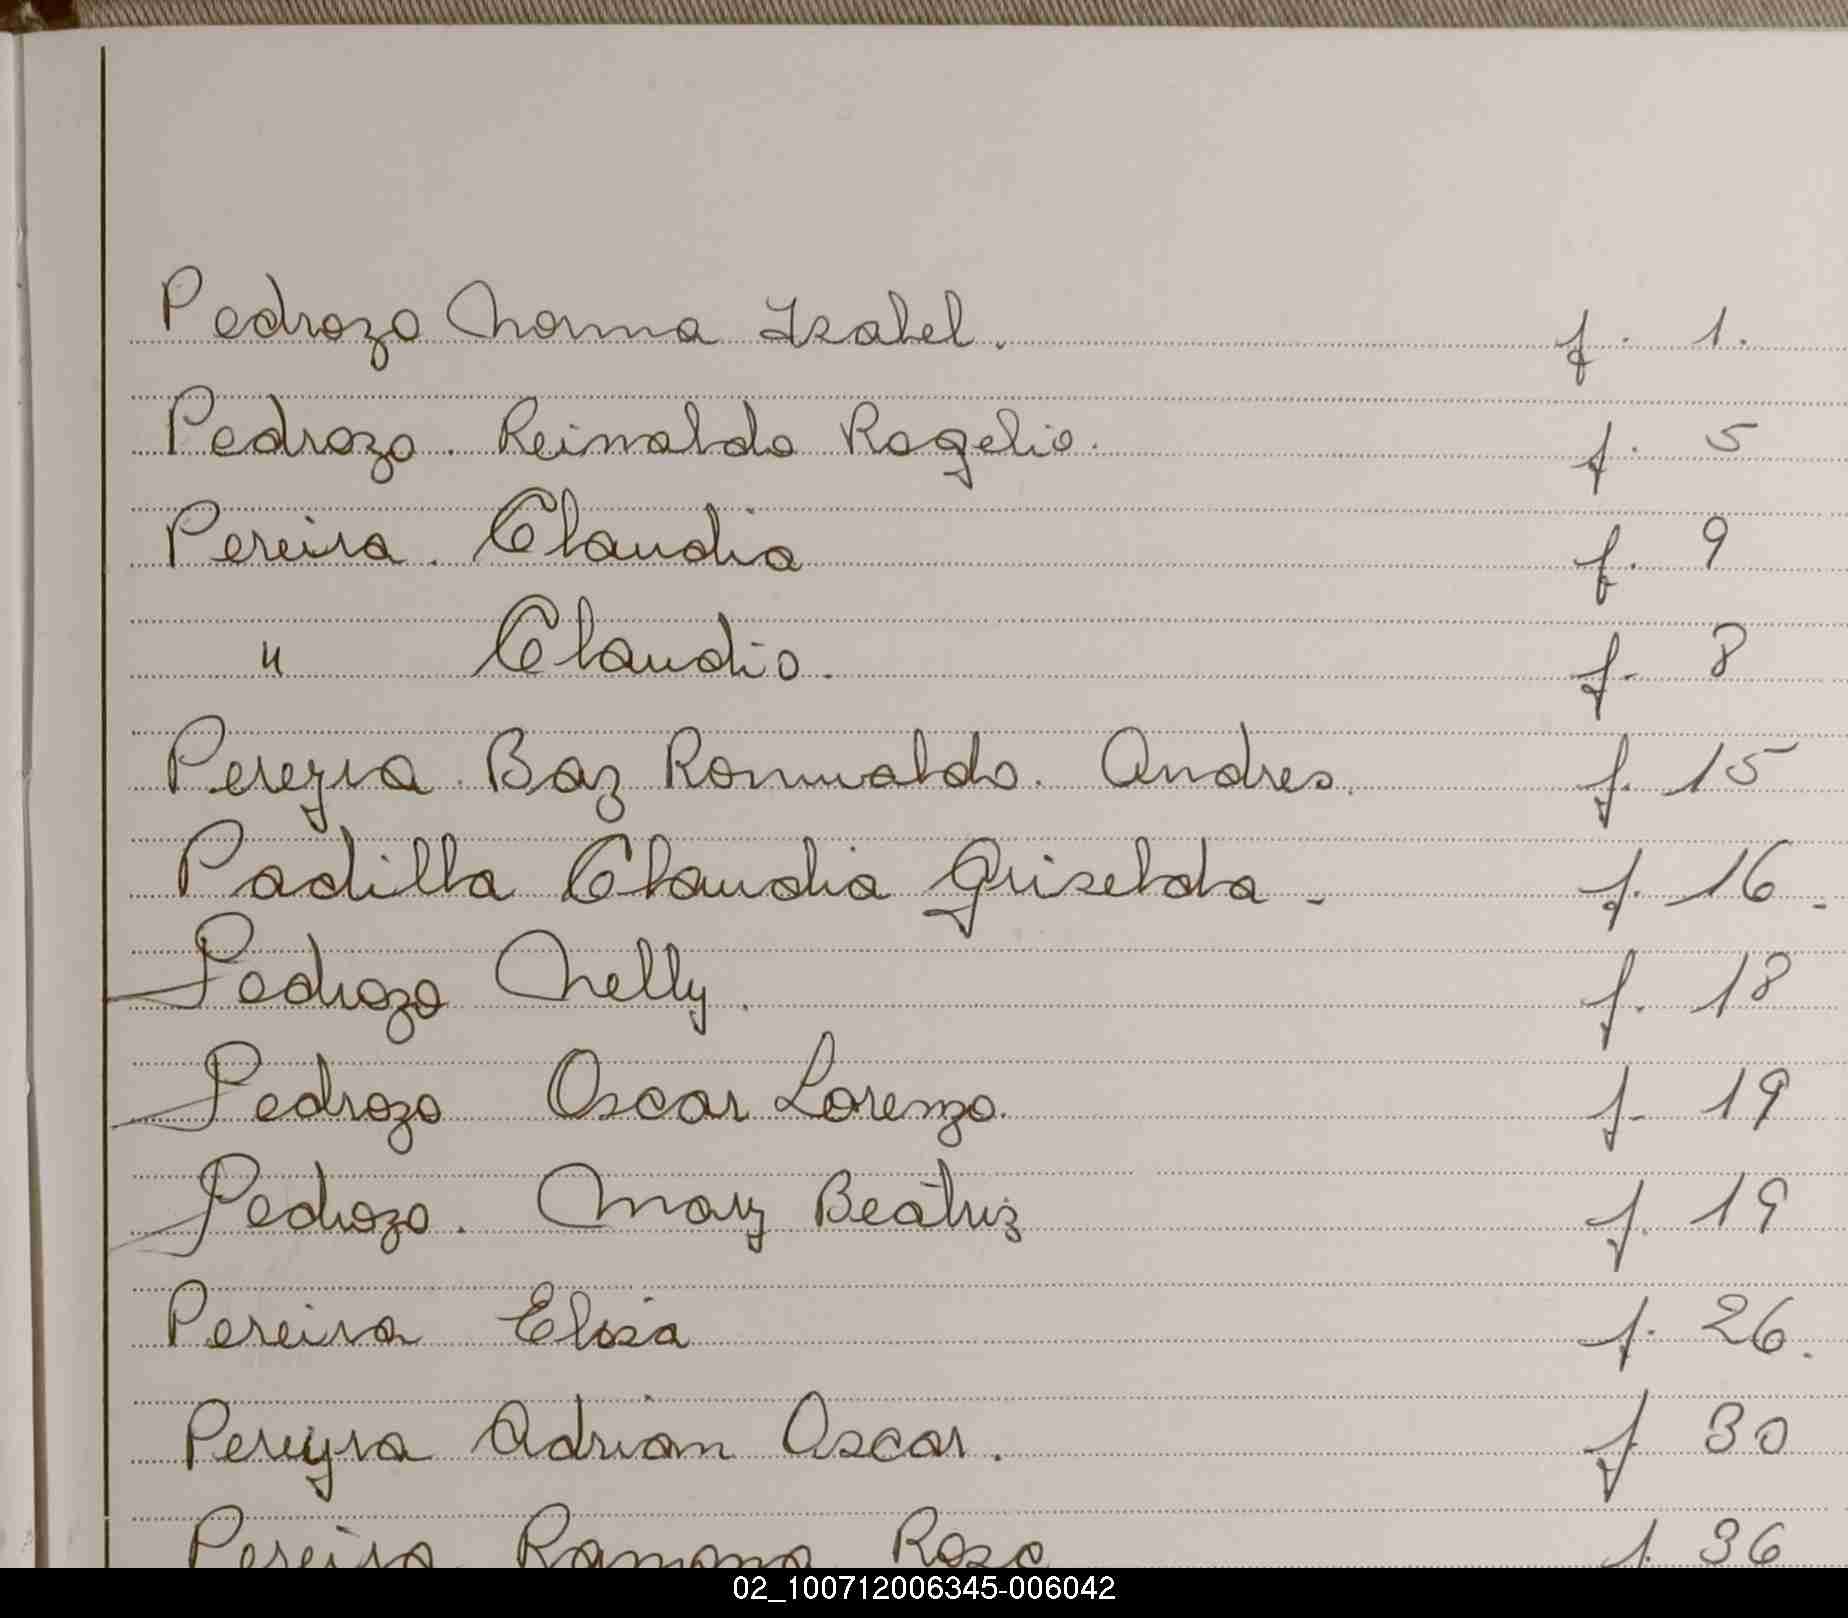 Pedrozo Norma Isabel. f. 1.
Pedrozo. Reinaldo Rogelio. f. 5
Pereira. Claudia f. 9
" Claudio. f. 8
Pereyra. Baz Romualdo. Andres. f. 15
Padilla Claudia Griselda - f. 16.
Pedrozo Nelly. f. 18
Pedrozo Oscar Lorenzo. f. 19
Pedrozo. Mary Beatriz f. 19
Pereira Elisa f. 26.
Pereyra Adrian Oscar. f 30
Pereira Ramona Rosa f. 36
02_100712006345-006042